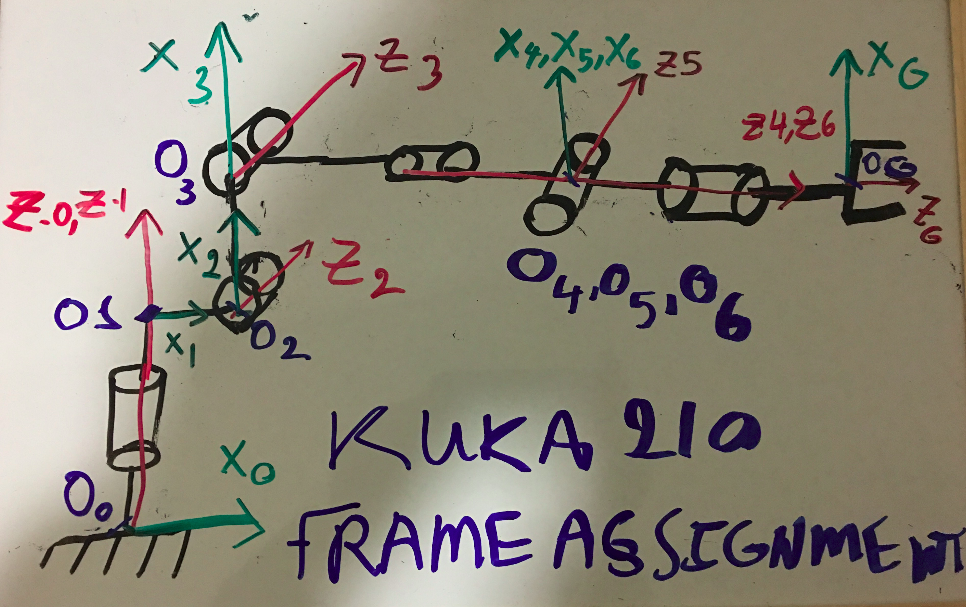 X3
Z3
X4,X5,X6
Z5
XG
O3
Z4,Z6
OG
Z-0,Z-1
ZG
X2
Z2
O1
X1
O2
O4,O5,O6
KUKA 210
X0
O0
FRAME ASSIGNMENT